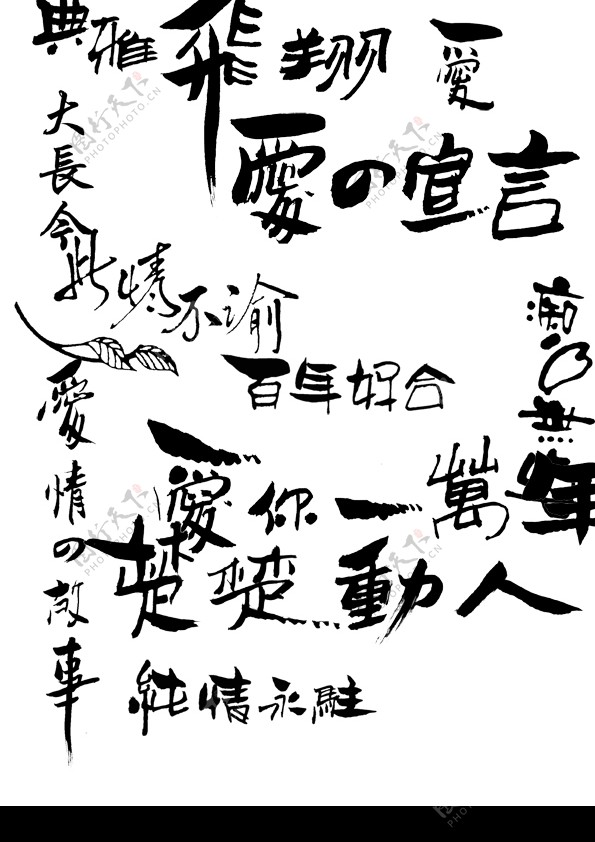 典雅
飛翔
愛
大長今
愛の宣言
此情不渝
百年好合
愛情の故事
愛你一萬年
楚楚動人
純情永駐
图行天下
PHOTOPHOTO.CN